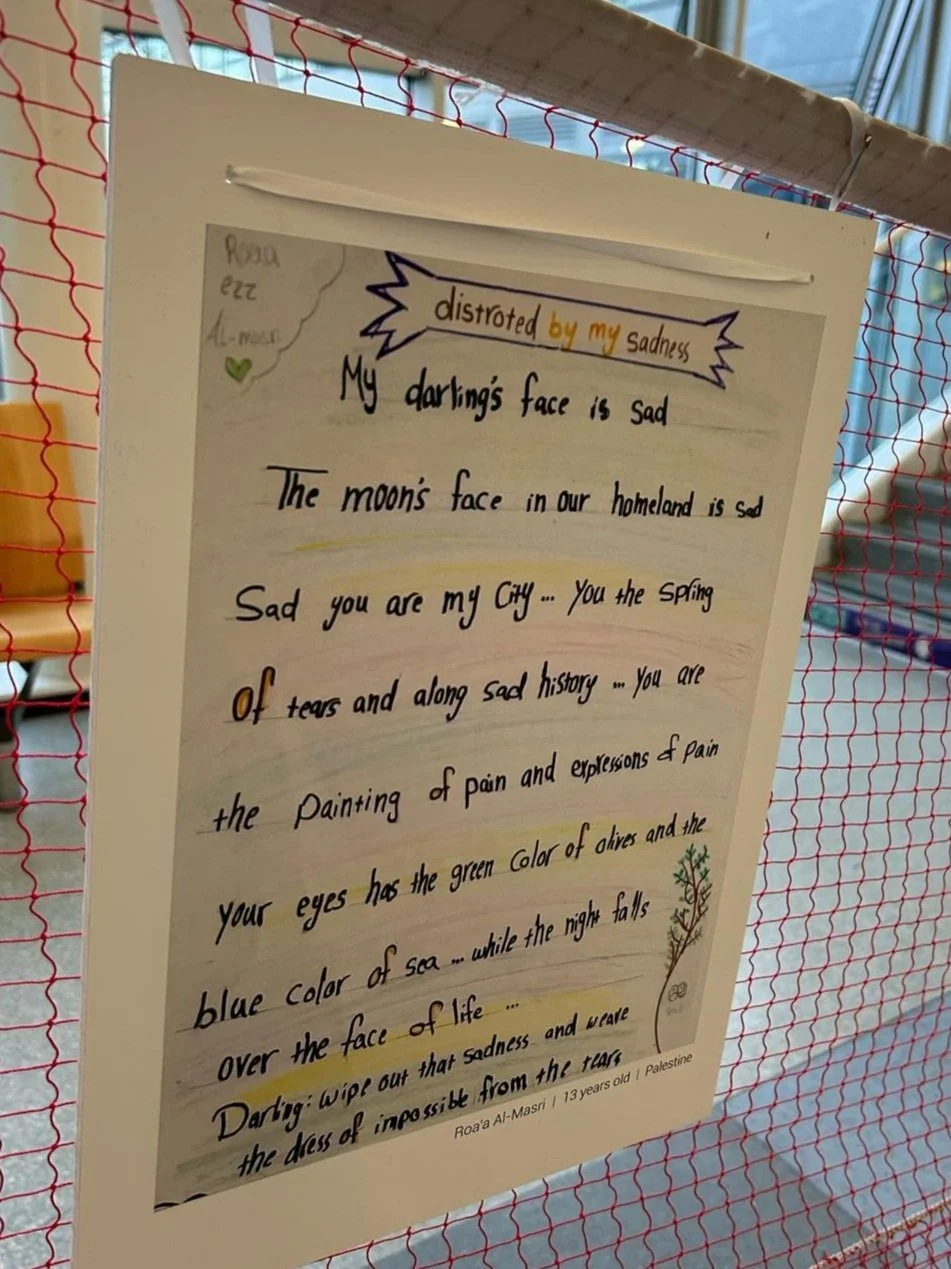 Roaa
ezz
Al-masri
distroted by my sadness
My darling's face is sad
The moon's face in our homeland is sad
Sad you are my City... You the spring
of tears and along sad history ... you are
the Painting of pain and expressions of pain
your eyes has the green color of olives and the
blue color of sea ... while the night falls
over the face of life ...
Darling: wipe out that sadness and weare
the dress of impossible from the tears
Roa'a Al-Masri | 13 years old | Palestine